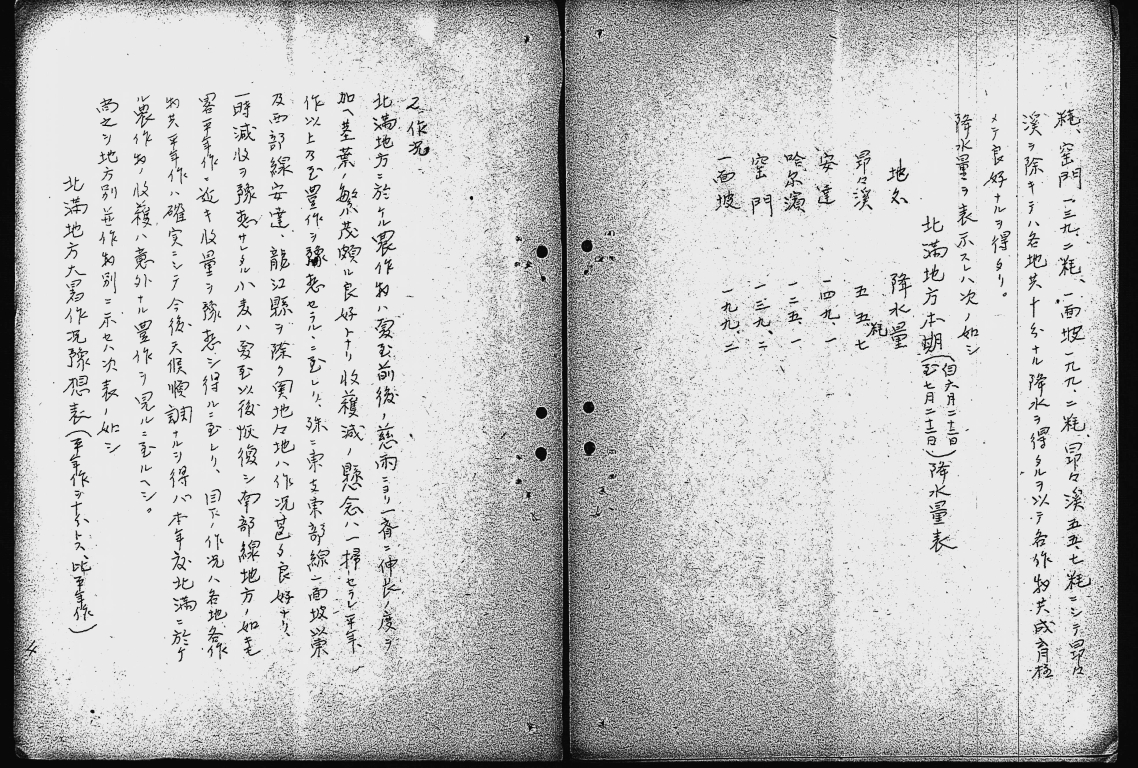 粍、窑門一三九、二粍、一面坡一九九、二粍、昂々溪五五、七粍ニシテ昂々
溪ヲ除キテハ各地共十分ナル降水ヲ得タルヲ以テ各作物共成育極
メテ良好ナルヲ得タリ。
降水量ヲ表示スレハ次ノ如シ
北満地方本期(自六月二十三日至七月二十二日)降水量表
地名 降水量
昂々溪 五五、七粍
安達 一四九、一
哈尔濱 一二五、一
窑門 一三九、二
一面坡 一九九、二
2.作況
北満地方ニ於ケル農作物ハ夏至前後ノ慈雨ニヨリ一斉ニ伸長ノ度ヲ
加ヘ茎葉ノ繁茂頗ル良好トナリ收穫減ノ懸念ハ一掃セラレ平年
作以上乃至豊作ヲ豫想セラルヽニ至レリ、殊ニ東支東部線一面坡以東
及西部線安達、龍江縣ヲ除ク奥地々地ハ作況甚タ良好ナリ、
一時減收ヲ豫想サレタル小麦ハ夏至以後恢復シ南部線地方ノ如キ
畧平年作ニ近キ收量ヲ豫想シ得ルニ至レリ、目下ノ作況ハ各地各作
物共平年作ハ確実ニシテ今後天候順調ナルヲ得バ本年度北満ニ於ケ
ル農作物ノ收穫ハ意外ナル豊作ヲ見ルニ至ルヘシ。
而之ヲ地方別並作物別ニ示セハ次表ノ如シ
北満地方大畧作況豫想表(平年作ヲ十トス、比平年作)
4